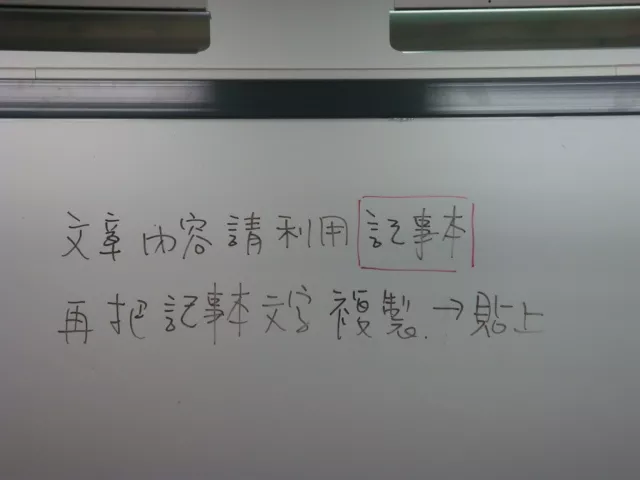 文章內容請利用記事本
再把記事本文字複製.→貼上